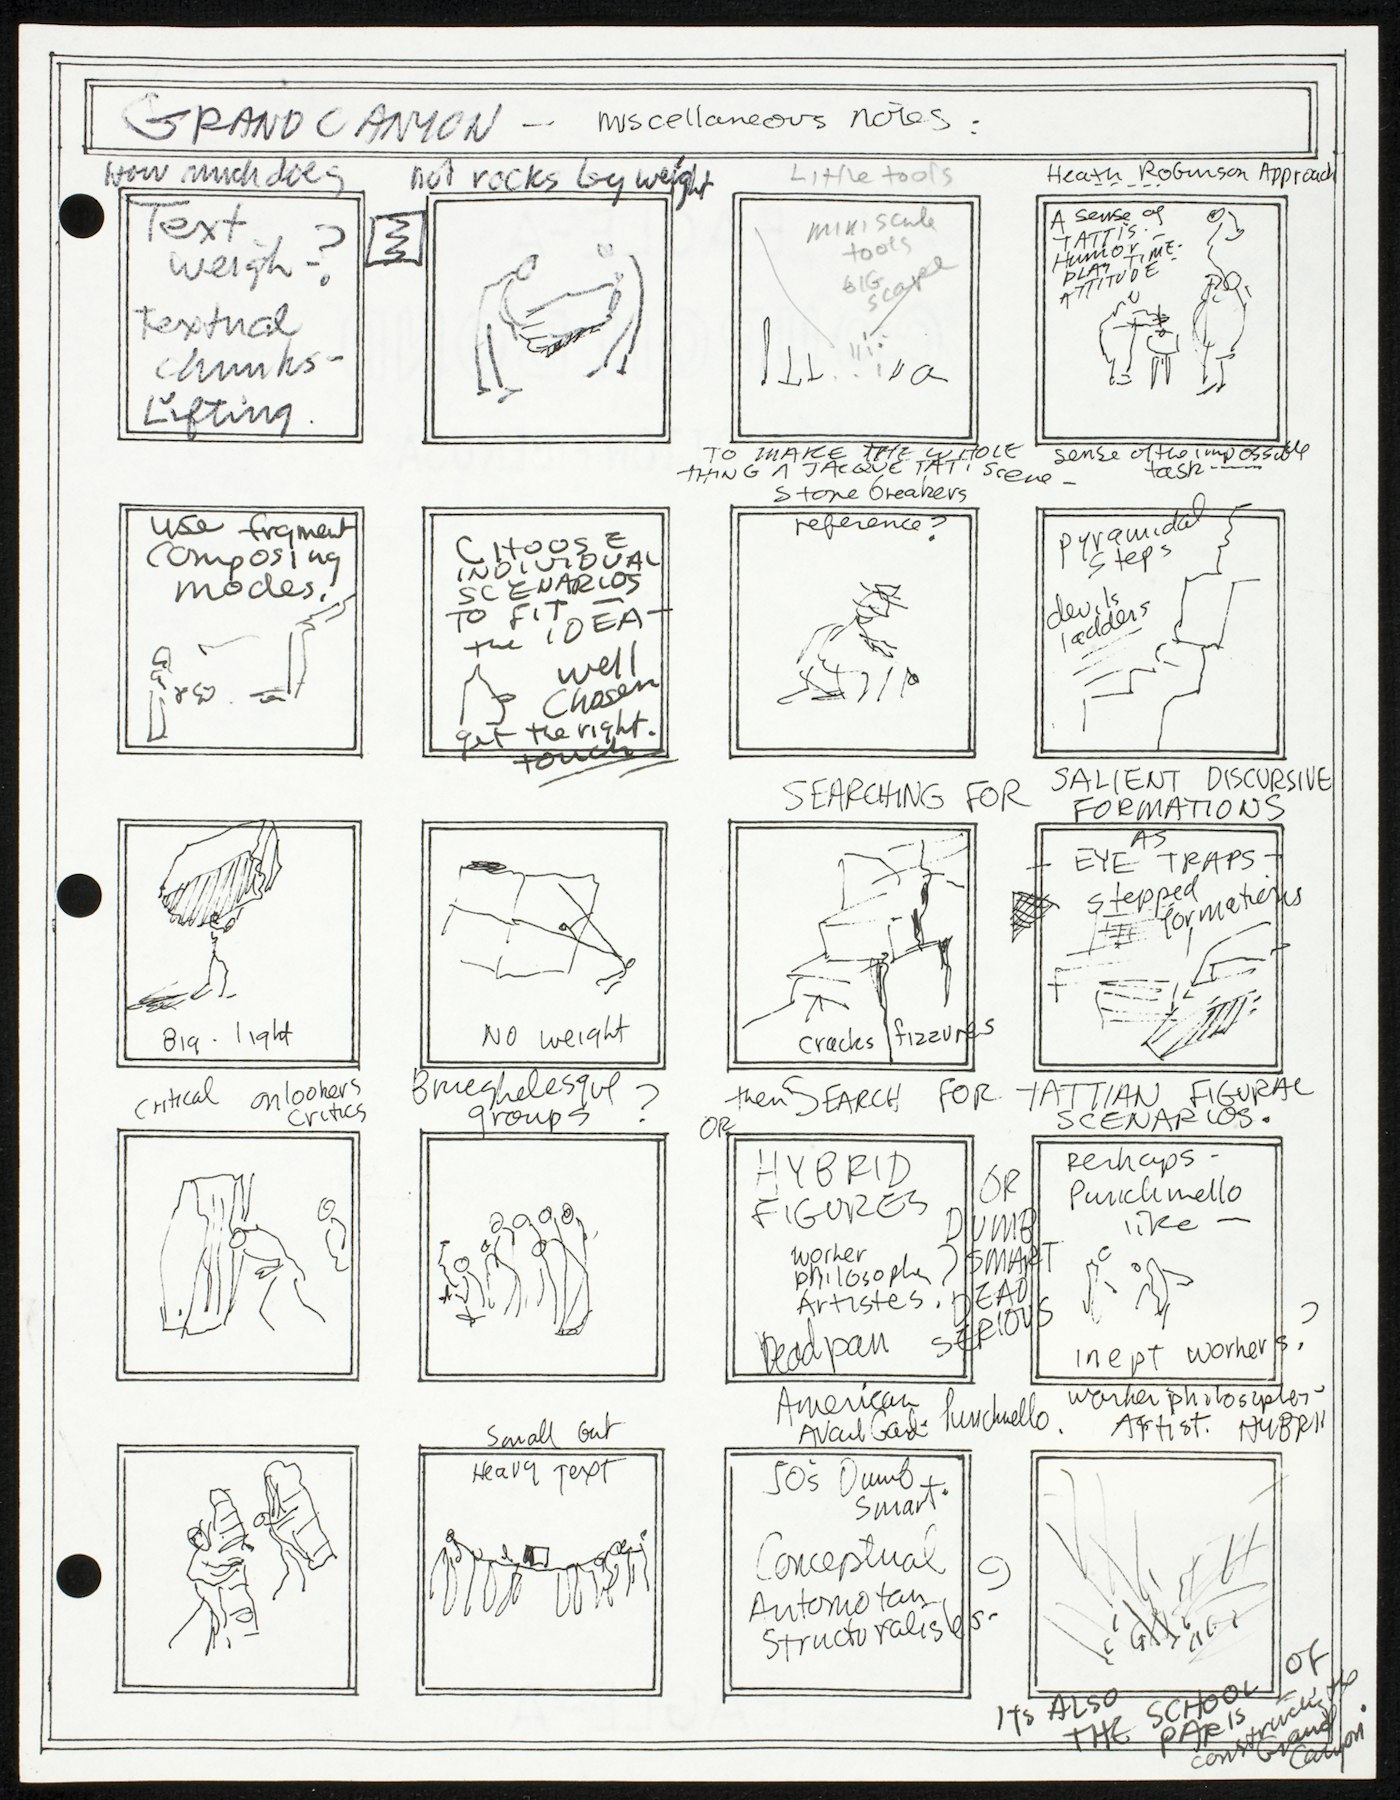 GRAND CANYON — miscellaneous notes:
How much does
Text
weigh-?
Textual
chunks-
Lifting.
not rocks by weight
Little tools
miniscule
tools
BIG
scape
Heath Robinson Approach
A sense of
TATTIS
HUMOR -
PLAY TIME-
ATTITUDE
TO MAKE THE WHOLE
THING A JACQUE TATI Scene -
sense of the impossible
task
use fragment
composing
modes!
CHOOSE
INDIVIDUAL
SCENARIOS
TO FIT
the IDEA -
well
Chosen
get the right.
touch
Stone breakers
reference?
pyramidal
steps
devils
ladders
Big. light
NO weight
SEARCHING FOR SALIENT DISCURSIVE
FORMATIONS
cracks fizzures
AS
- EYE TRAPS -
stepped
formations
critical onlookers
critics
Brueghelesque
groups ?
then SEARCH FOR TATTIAN FIGURAL
SCENARIOS.
OR
HYBRID
FIGURES
worker
philosopher
Artistes.
Deadpan
OR
DUMB
SMART
DEAD
SERIOUS
Perhaps -
Punchinello
like —
inept workers?
American
Avant Gard- Punchinello.
worker philosopher-
Artist. HYBRID
Small but
Heavy Text
50's Dumb
Smart.
Conceptual
Automotan
Structuralistes-
Its ALSO
THE SCHOOL OF
PARIS
constructing the
Grand
Canyon.